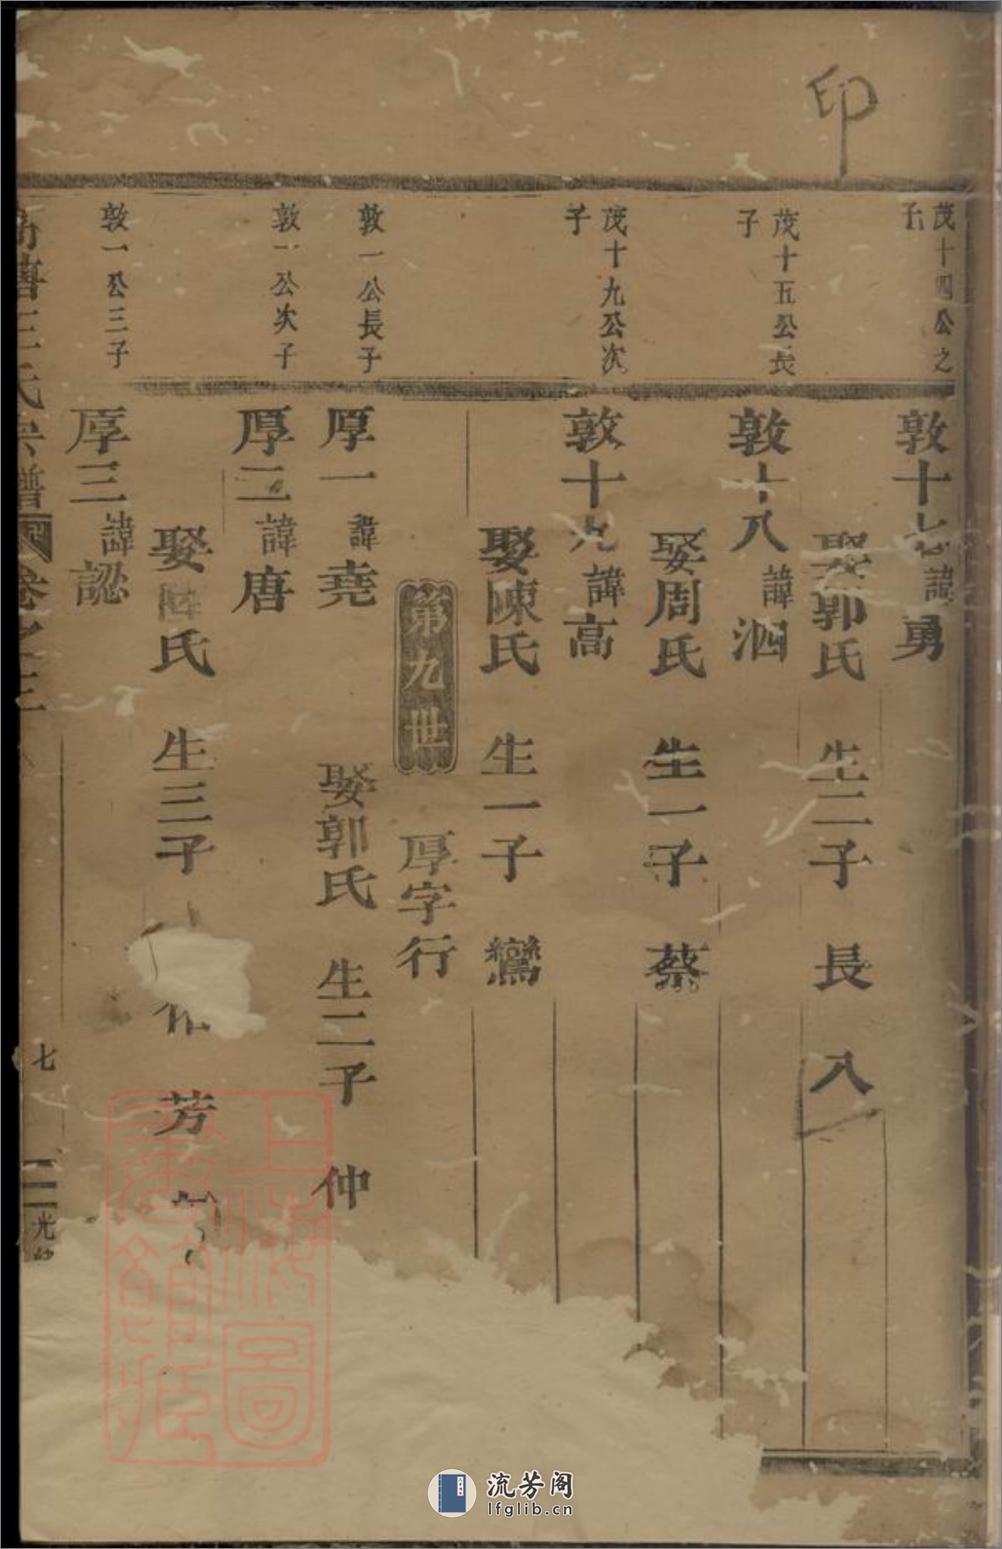 印
茂十四公之
子
敦十七諱勇
娶郭氏 生二子 長 八
茂十五公長
子
敦十八諱泗
娶周氏 生一子 蔡
茂十九公次
子
敦十九諱高
娶陳氏 生一子 鸞
第九世 厚字行
敦一公長子
厚一諱堯 娶郭氏 生二子 仲
敦一公次子
厚二諱唐
娶 氏 生三子 芳
敦一公三子
厚三諱認
塘王氏宗譜 卷之三 七 光緒
上海圖書館藏
流芳阁
lfglib.cn